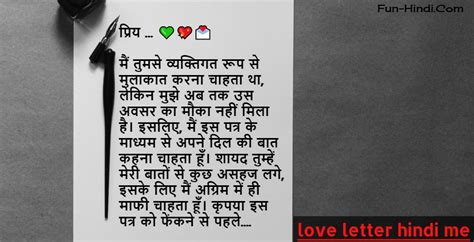 Fun-Hindi.Com
प्रिय ... 💚💘💌
मैं तुमसे व्यक्तिगत रूप से
मुलाकात करना चाहता था,
लेकिन मुझे अब तक उस
अवसर का मौका नहीं मिला
है। इसलिए, मैं इस पत्र के
माध्यम से अपने दिल की बात
कहना चाहता हूँ। शायद तुम्हें
मेरी बातों से कुछ असहज लगे,
इसके लिए मैं अग्रिम में ही
माफी चाहता हूँ। कृपया इस
पत्र को फेंकने से पहले....
love letter hindi me